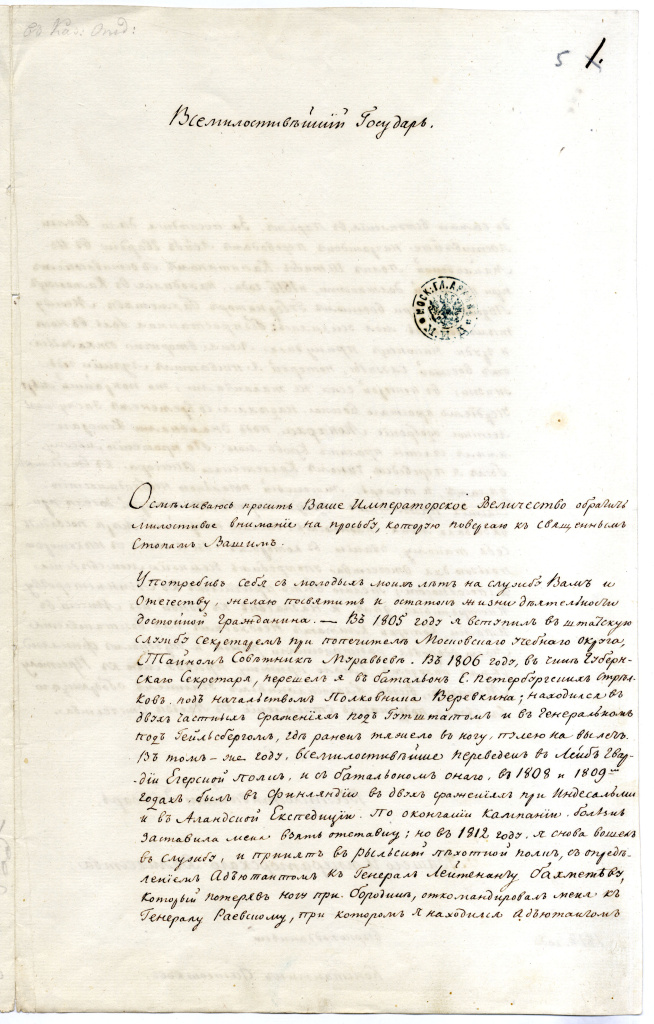 5 1.
Всемилостивѣйшій Государь.
МОСК. ГЛ. АРХИВЪ М. И. Д.
Осмѣливаюсь просить Ваше Императорское Величество обратить
милостивое вниманіе на прозьбу, которую повергаю къ священнымъ
Стопамъ Вашимъ.
Употребивъ себя съ молодыхъ моихъ лѣтъ на службу Вамъ и
Отечеству, желаю посвятить и остатокъ жизни дѣятельности
достойной Гражданина. — Въ 1805 году я вступилъ въ штатскую
службу секретаремъ при попечителѣ Московскаго Учебнаго округа,
Тайномъ Совѣтникѣ Муравьевѣ. Въ 1806 году, въ чинѣ Губерн-
скаго Секретаря, перешелъ я въ батальонъ С. Петербургскихъ стрѣл-
ковъ, подъ начальствомъ Полковника Веревкина; находился въ
двухъ частныхъ сраженіяхъ подъ Гутштатомъ и въ Генеральномъ
подъ Гейльсбергомъ, гдѣ раненъ тяжело въ ногу пулею на вылетъ.
Въ томъ-же году, всемилостивѣйше переведенъ въ Лейбъ Гвар-
дій Егерской полкъ, и съ батальономъ онаго, въ 1808 и 1809мъ
годахъ былъ въ Финляндіи въ двухъ сраженіяхъ при Индесальми
и въ Аландской Експедиціи. По окончаніи кампаніи болѣзнь
заставила меня взять отставку; но въ 1812 году, я снова вошелъ
въ службу, и принятъ въ Рыльскій пѣхотной полкъ, съ опредѣ-
леніемъ Адъютантомъ къ Генералъ Лейтенанту Бахметеву,
который потерявъ ногу при Бородинѣ, откомандировалъ меня къ
Генералу Раевскому, при которомъ я находился Адъютантомъ